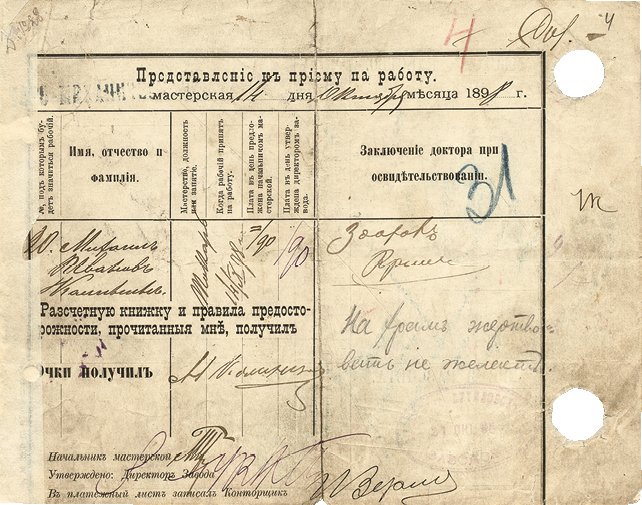 Дог.
Представленіе къ пріему на работу.
мастерская 14 дня Октября мѣсяца 1898 г.
№, под которымъ бу-
детъ значиться рабочій.
Имя, отчество и
фамилія.
Мастерство, должность
или занятіе.
Когда рабочій принятъ
на работу.
Плата въ день предло-
жена начальникомъ ма-
стерской.
Плата въ день утвер-
ждена директоромъ за-
вода.
Заключеніе доктора при
освидѣтельствованіи.
31
Михаилъ
Ивановъ
Калининъ
Токарь
14/X 98
/90
/90
Здоровъ
Разсчетную книжку и правила предосто-
рожности, прочитанныя мнѣ, получилъ
На храмъ жертво-
вать не желаетъ.
очки получилъ
М Калининъ
Начальникъ мастерской
Утверждено: Директоръ Завода
Въ платежный листъ записалъ Конторщикъ